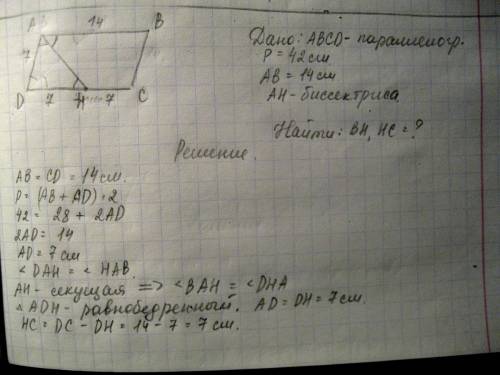 A 14 B
7
D 7 H 7 C
Дано: ABCD - параллелогр.
P = 42 см
AB = 14 см
AH - биссектриса
Найти: BH, HC = ?
Решение.
AB = CD = 14 см.
P = (AB + AD) · 2
42 = 28 + 2AD
2AD = 14
AD = 7 см
< DAH = < HAB.
AH - секущая => < BAH = < DHA
△ ADH - равнобедренный. AD = DH = 7 см.
HC = DC - DH = 14 - 7 = 7 см.